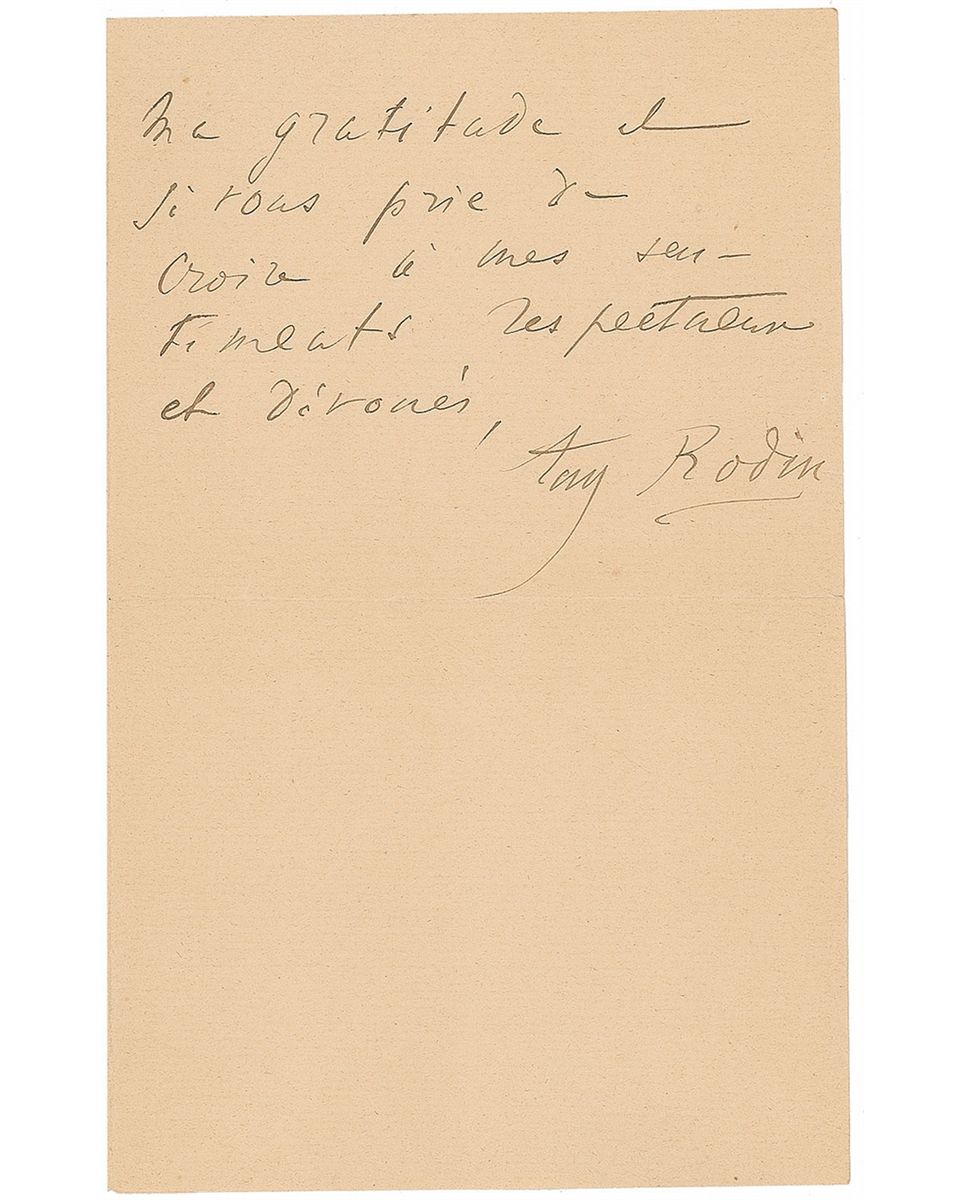 Ma gratitude et
je vous prie de
croire à mes sen-
timents respectueux
et dévoués,
Aug Rodin